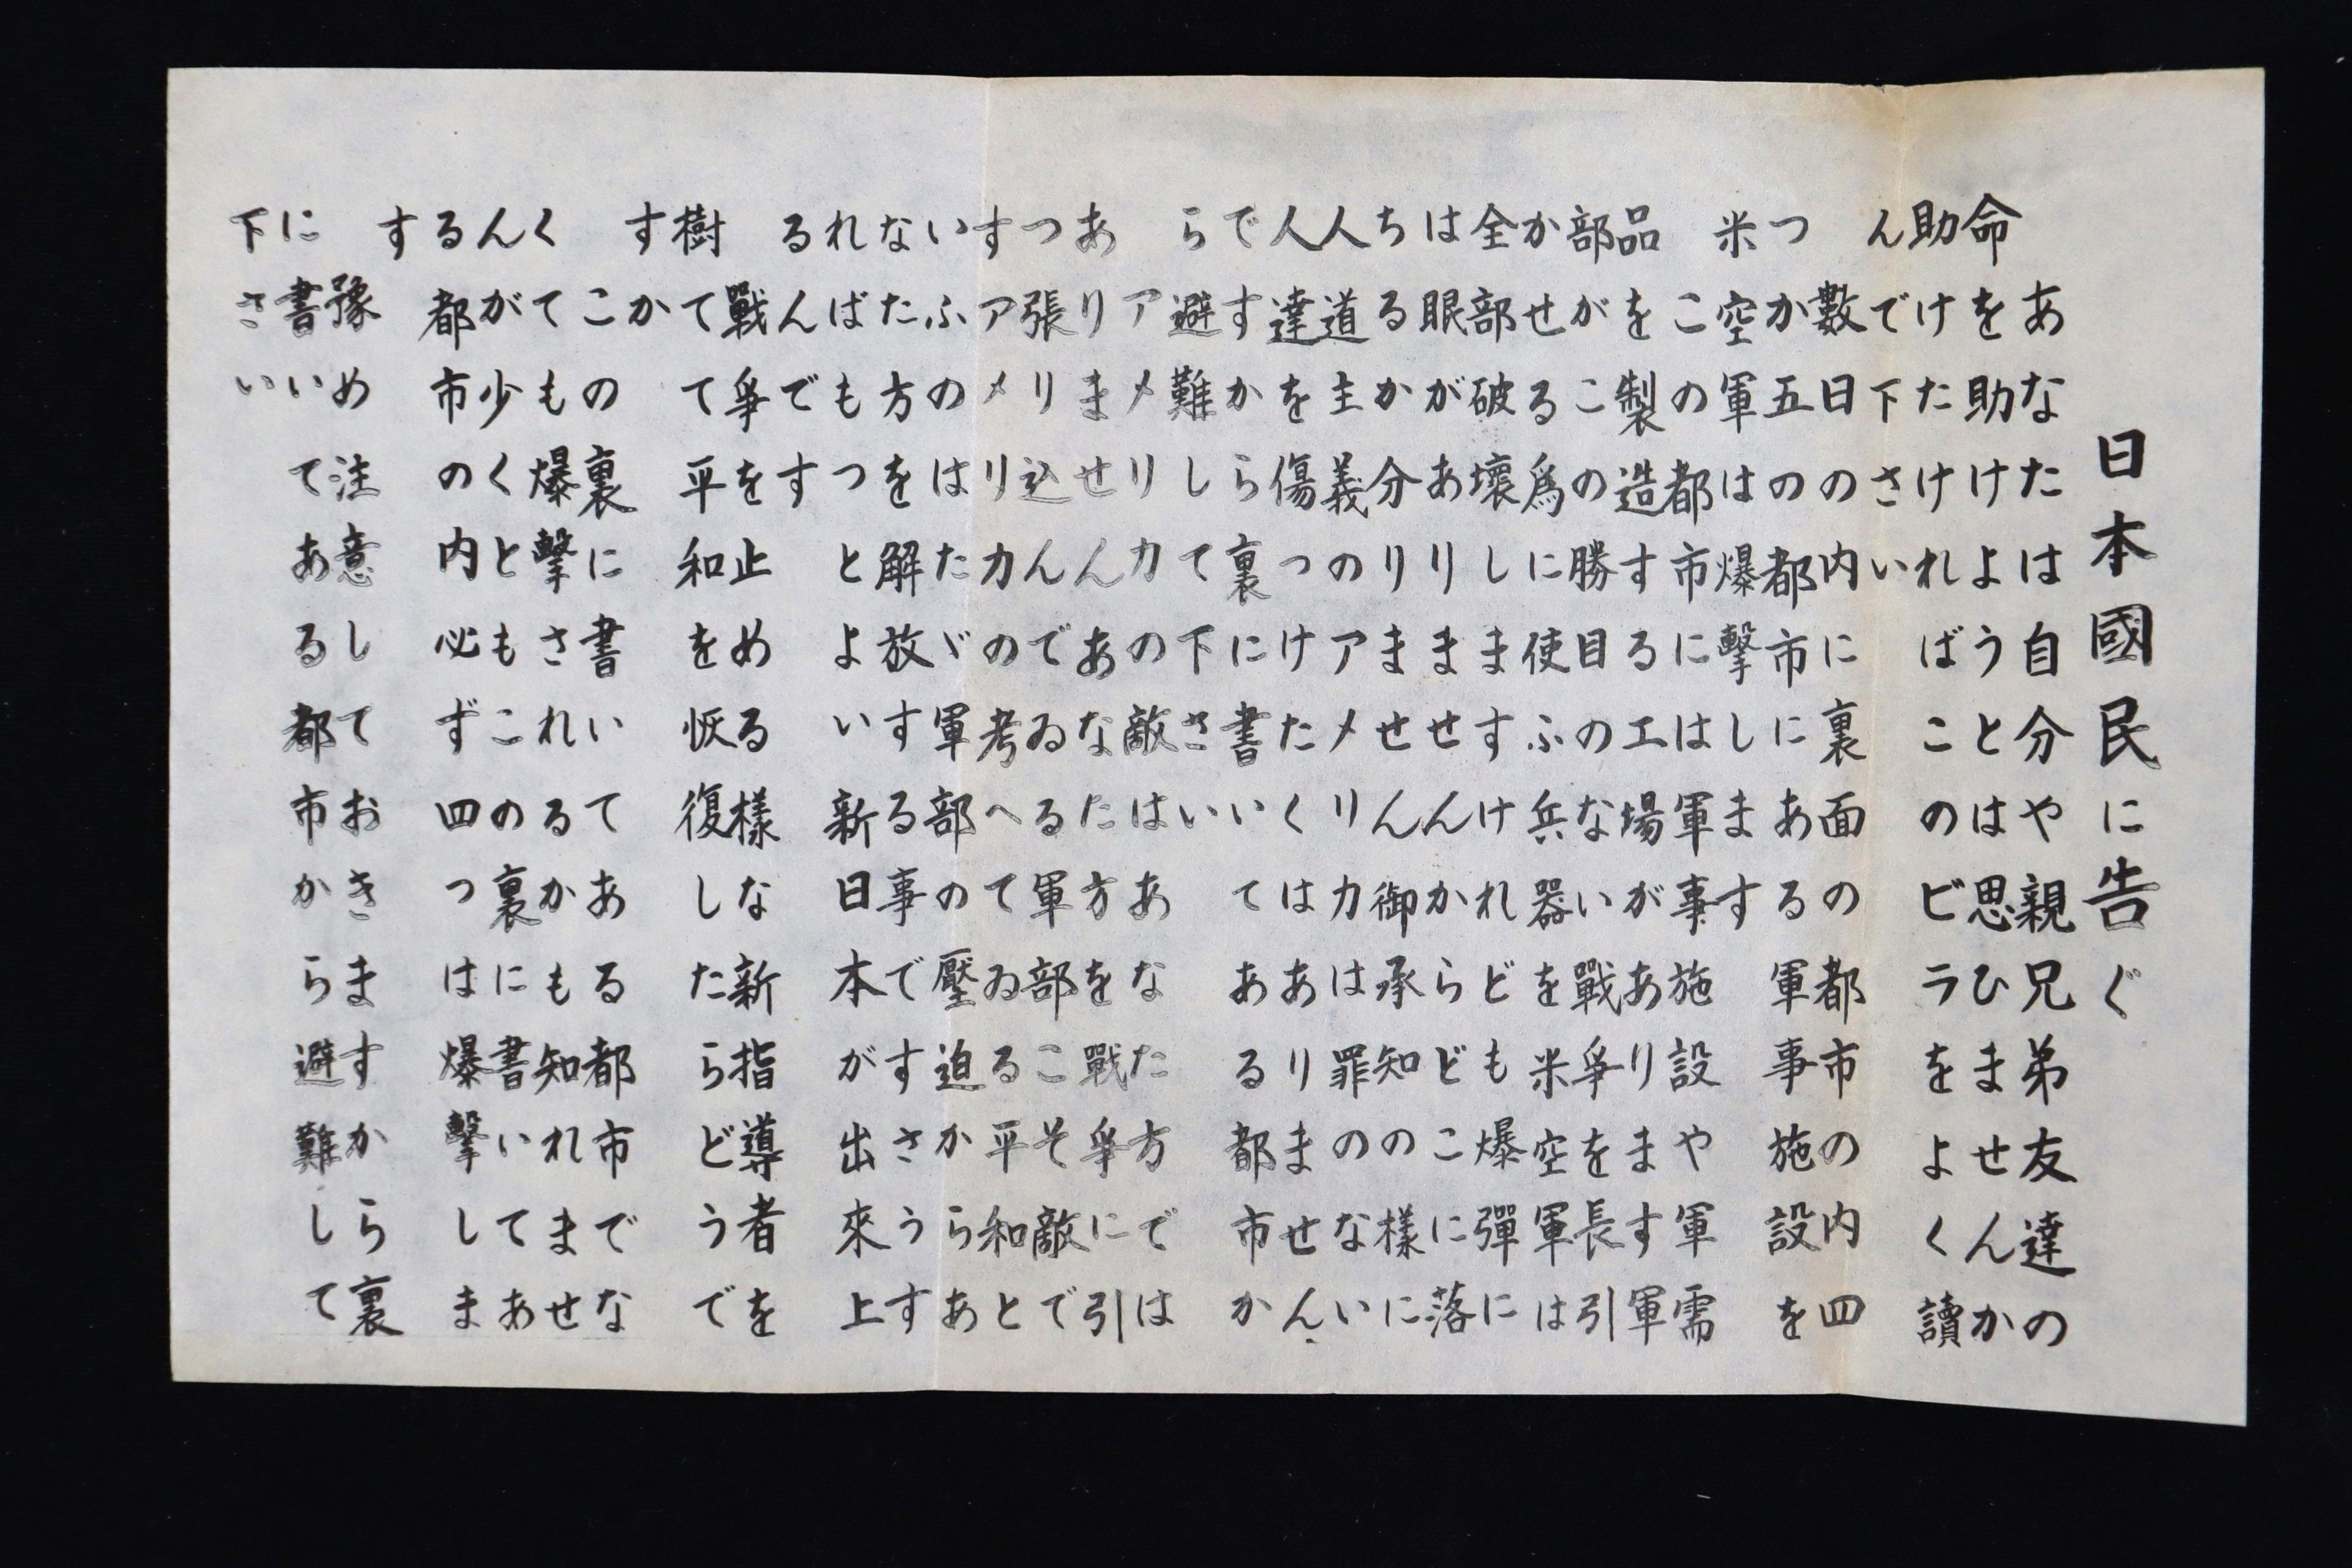 日本國民に告ぐ
あなたは自分や親兄弟友達の
命を助けようとは思ひませんか
助けたければこのビラをよく讀
んで下さい
數日の内に裏面の都市の内四
つか五の都市にある軍事施設を
米空軍は爆擊します
この都市には軍事施設や軍需
品を製造する工場があります軍
部がこの勝目のない戰爭を長引
かせる爲に使ふ兵器を米空軍は
全部破壞しますけれども爆彈に
は眼がありませんからどこに落
ちるか分りません御承知の樣に
人道主義のアメリカは罪のない
人達を傷つけたくはありません
ですから裏に書いてある都市か
ら避難して下さい
アメリカの敵はあなた方では
ありませんあなた方を戰爭に引
つ張り込んでゐる軍部こそ敵で
すアメリカの考へてゐる平和と
いふのはたゞ軍部の壓迫からあ
なた方を解放する事ですさうす
ればもつとよい新日本が出來上
るんです
戰爭を止める樣な新指導者を
樹てて平和を恢復したらどうで
すか
この裏に書いてある都市でな
くても爆擊されるかも知れませ
んが少くともこの裏に書いてあ
る都市の内必ず四つは爆擊しま
す
豫め注意しておきますから裏
に書いてある都市から避難して
下さい